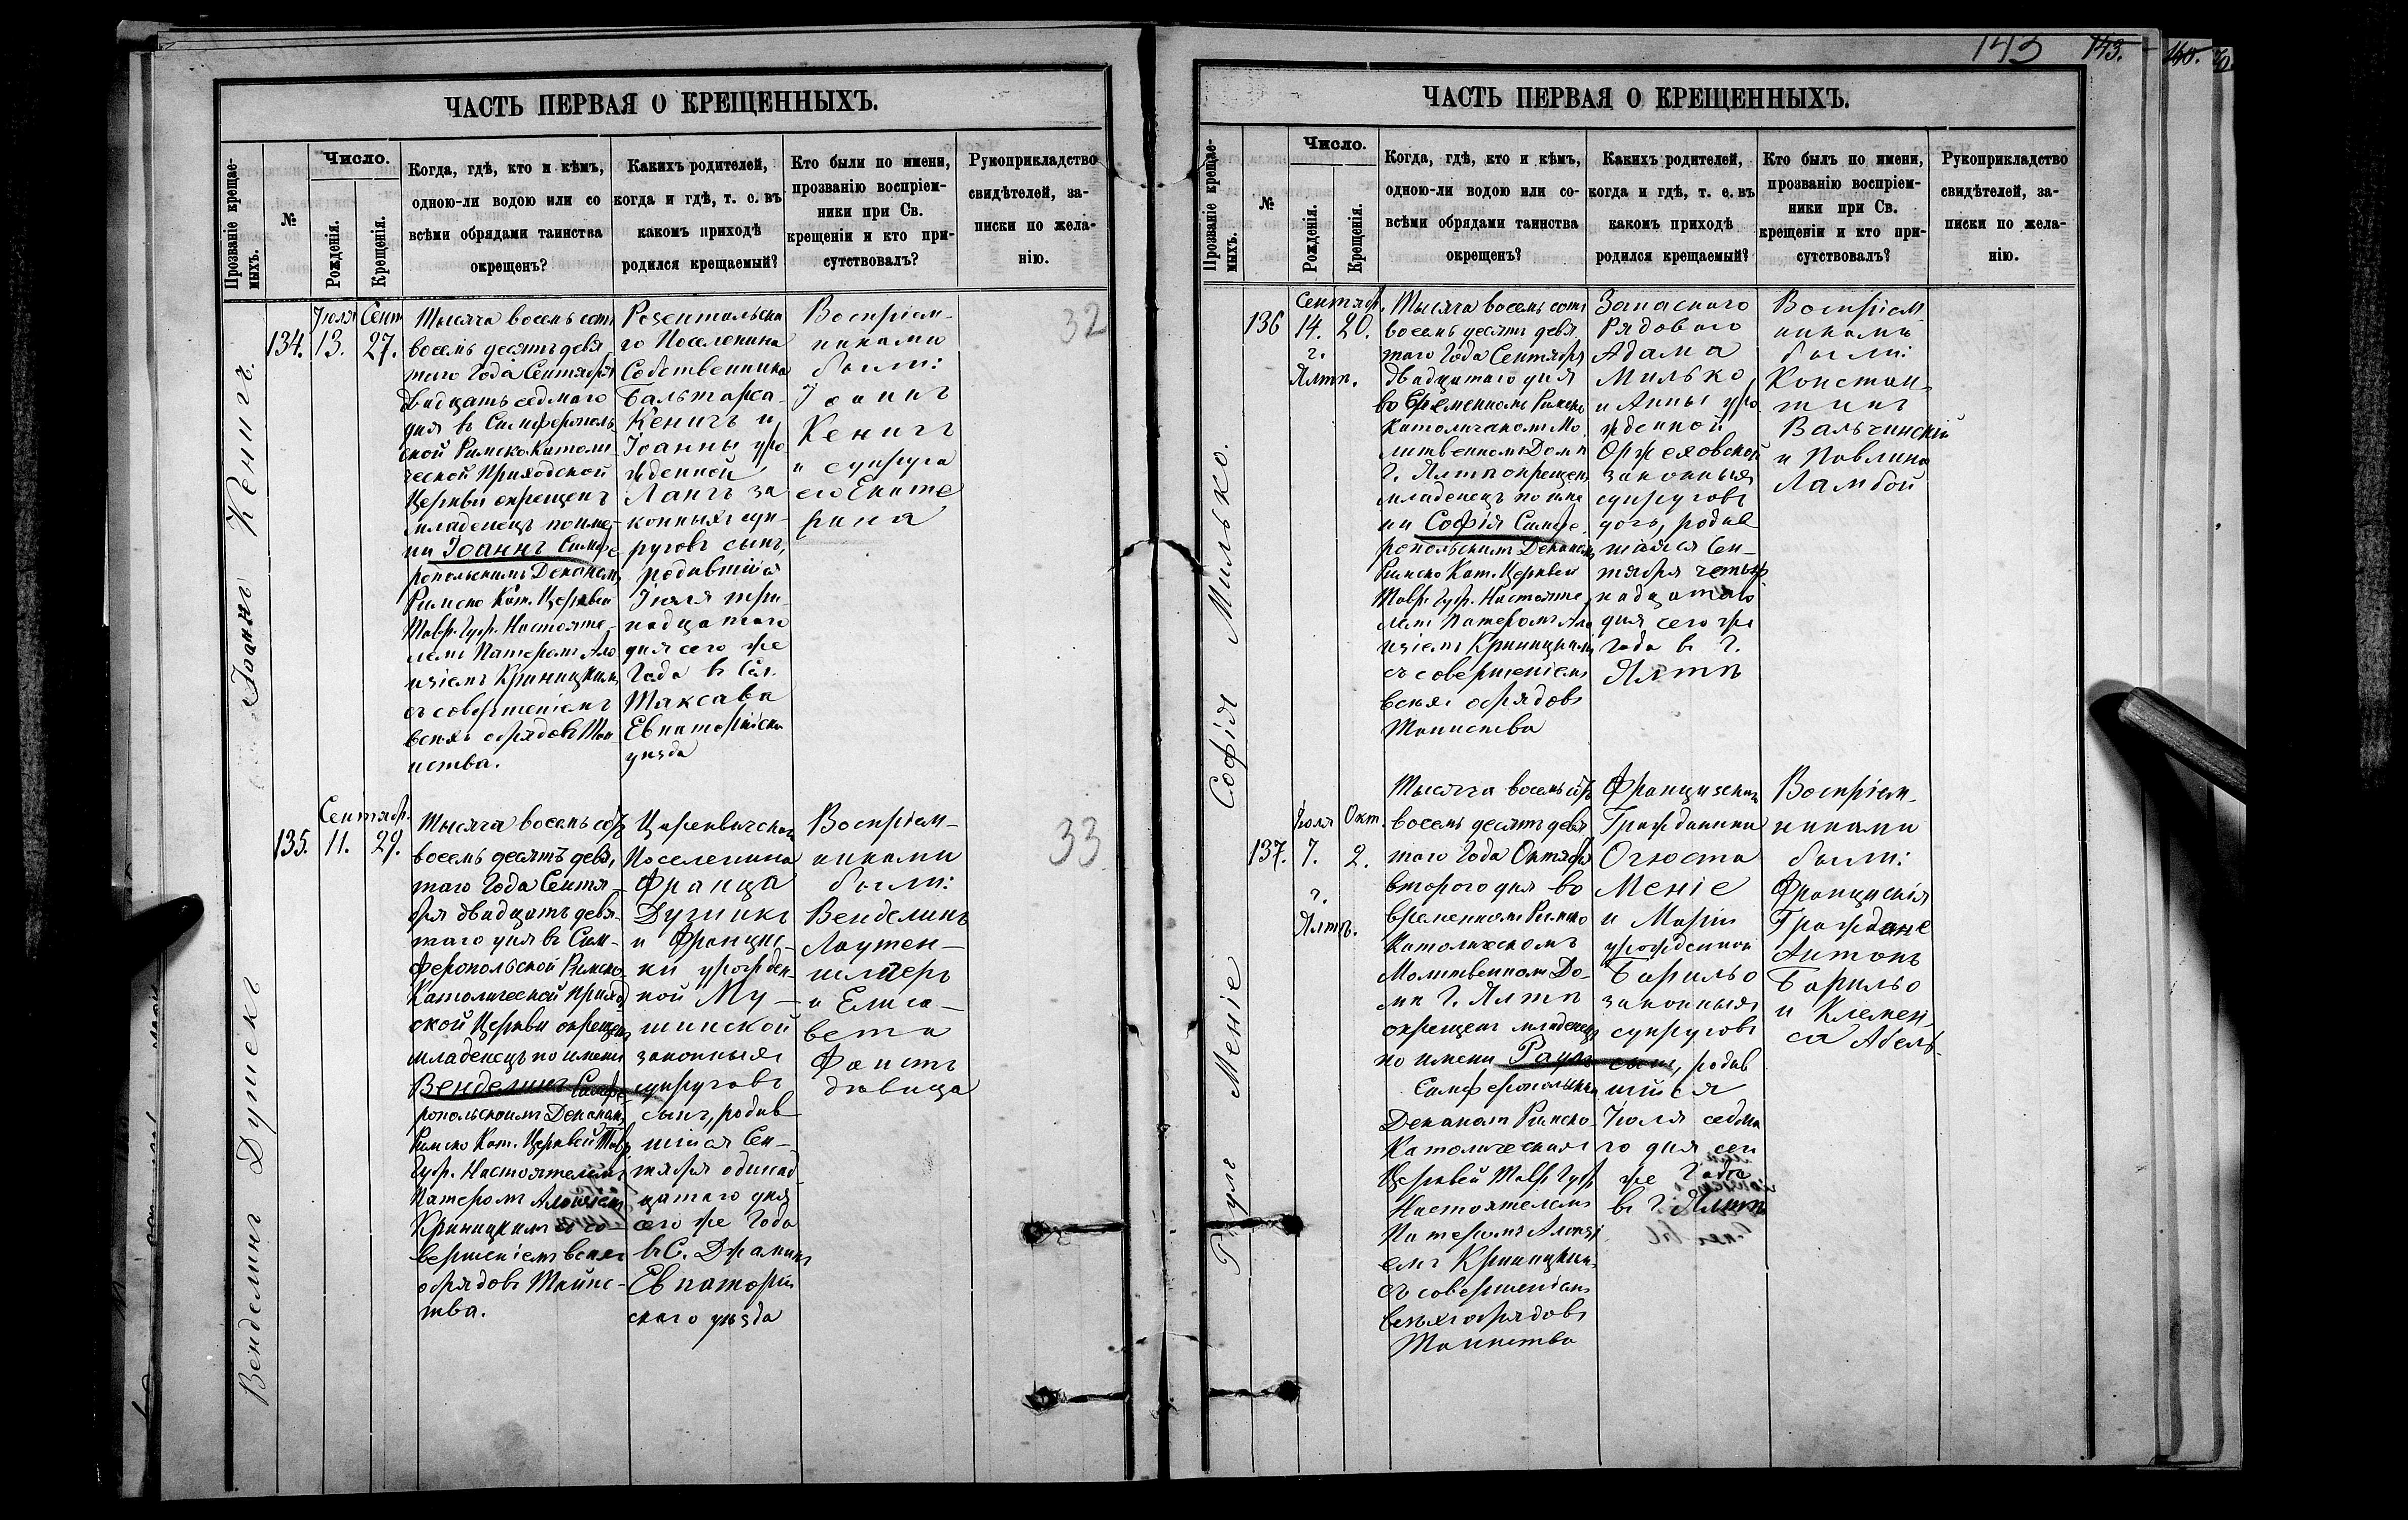 143 143. 140. 70.
ЧАСТЬ ПЕРВАЯ О КРЕЩЕННЫХЪ.
Прозваніе крещае-
мыхъ.
№
Число.
Рожденія.
Крещенія.
Когда, гдѣ, кто и кѣмъ,
одною-ли водою или со
всѣми обрядами таинства
окрещенъ?
Какихъ родителей,
когда и гдѣ, т. е. въ
какомъ приходѣ
родился крещаемый?
Кто были по имени,
прозванію воспріем-
ники при Св.
крещеніи и кто при-
сутствовалъ?
Рукоприкладство
свидѣтелей, за-
писки по жела-
нію.
Іоаннъ Кенигъ.
134.
Іюля
13.
Сент
27.
Тысяча восемьсотъ
восемьдесятъ девя
таго Года Сентября
двадцать седмаго
дня въ Симферополь
ской Римско Католи
ческой Приходской
Церкви окрещенъ
младенецъ по име-
ни Іоаннъ Симфе
ропольскимъ Деканомъ
Римско Кат. Церквей
Тавр. Губ. Настояте-
лемъ Патеромъ Ало
изіемъ Криницкимъ
съ совершеніемъ
всѣхъ обрядовъ Таи-
нства.
Розентальска
го Поселенина
Собственника
Бальтаза
Кенигъ и
Іоанны уро
жденной
Лангъ за
конныхъ суп-
руговъ сынъ,
родившійся
Іюля три-
надцатаго
дня сего же
Года въ Сел.
Таксаба
Евпаторійска
уѣзда
Воспріем-
никами
были:
Іоаннъ
Кенигъ
и супруга
его Екате
рина
32
Венделинъ Душекъ
135.
Сентябр.
11. 29.
Тысяча восемьсотъ
восемьдесятъ девя
таго Года Сентя-
бря двадцать девя-
таго дня въ Сим-
феропольской Римско-
Католической Приход
ской Церкви окрещенъ
младенецъ по имени
Венделинъ Симфе
ропольскимъ Деканомъ
Римско Кат. Церквей Тавр.
Губ. Настоятелемъ
Патеромъ Алоизіемъ
Криницкимъ съ со-
вершеніемъ всѣхъ
обрядовъ Таинс-
тва.
Царевичскаго
Поселенина
Франца
Душекъ
и Францис-
ки урожден-
ной Му-
шинской
законныхъ
супруговъ
сынъ, родив
шійся Сен-
тября одинад
цатаго дня
сего же Года
въ С.
Евпаторій
скаго уѣзда
Воспріем-
никами
были:
Венделинъ
Лаутен-
шлегеръ
и Елиса-
вета
Фаистъ
дѣвица
33
ЧАСТЬ ПЕРВАЯ О КРЕЩЕННЫХЪ.
Прозваніе крещае-
мыхъ.
№
Число.
Рожденія.
Крещенія.
Когда, гдѣ, кто и кѣмъ,
одною-ли водою или со-
всѣми обрядами таинства
окрещенъ?
Какихъ родителей,
когда и гдѣ, т. е. въ
какомъ приходѣ
родился крещаемый?
Кто былъ по имени,
прозванію воспріем-
ники при Св.
крещеніи и кто при-
сутствовалъ?
Рукоприкладство
свидѣтелей, за-
писки по жела-
нію.
Софія Милько.
136
Сентябр.
14. 20.
г.
Ялта.
Тысяча восемьсотъ
восемьдесятъ девя
таго Года Сентября
двадцатаго дня
во Временномъ Римско
Католическомъ Мо
литвенномъ Домѣ
г. Ялтѣ окрещенъ
младенецъ по име
ни Софія Симфе
ропольскимъ Деканомъ
Римско Кат. Церквей
Тавр. Губ. Настояте
лемъ Патеромъ Ало
изіемъ Криницкимъ
съ совершеніемъ
всѣхъ обрядовъ
Таинства
Запаснаго
Рядоваго
Адама
Милько
и Анны уро
жденной
Оржеховской
законныхъ
супруговъ
дочь, родив
шаяся Сен-
тября четыр
надцатаго
дня сего же
Года въ г.
Ялтѣ
Воспріем
никами
были:
Констан-
тинъ
Вальчинскій
и Павлина
Ламбой
Рауль Меніе
137.
Іюля
7.
Окт.
2.
г.
Ялта.
Тысяча восемьсотъ
восемьдесятъ девя
таго Года Октября
втораго дня во
временномъ Римско
Католическомъ
Молитвенномъ До-
мѣ г. Ялтѣ
окрещенъ младенецъ
по имени Рауль
Симферопольскимъ
Деканомъ Римско
Католическихъ
Церквей Тавр Губ
Настоятелемъ
Патеромъ Алоизі
емъ Криницкимъ
съ совершеніемъ
всѣхъ обрядовъ
Таинства
Французскаго
Гражданина
Огюста
Меніе
и Маріи
урожденной
Барильо
законныхъ
супруговъ
сынъ, родив
шійся
Іюля седма
го дня сего
же Года
въ г. Ялтѣ
Воспріем-
никами
были:
Французскія
Граждане
Антонъ
Барильо
и Клемен-
са Абель